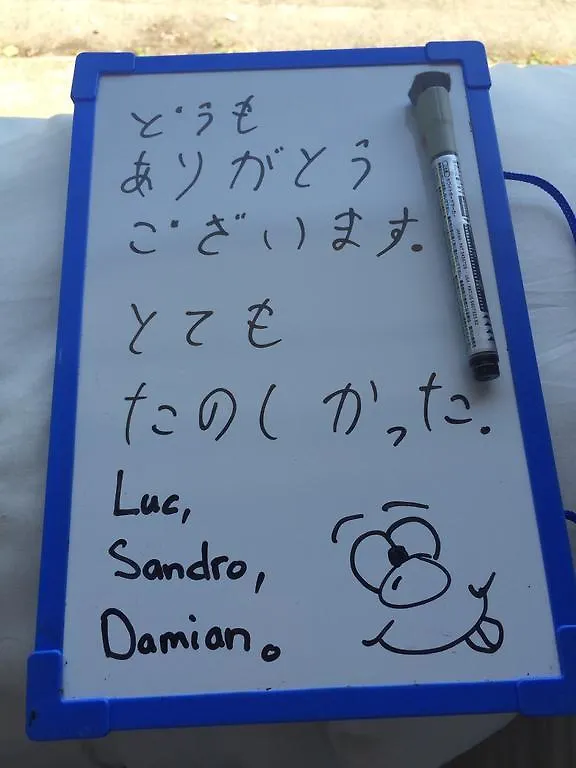 どうも
ありがとう
ございます.
とても
たのしかった.
Luc,
Sandro,
Damian.